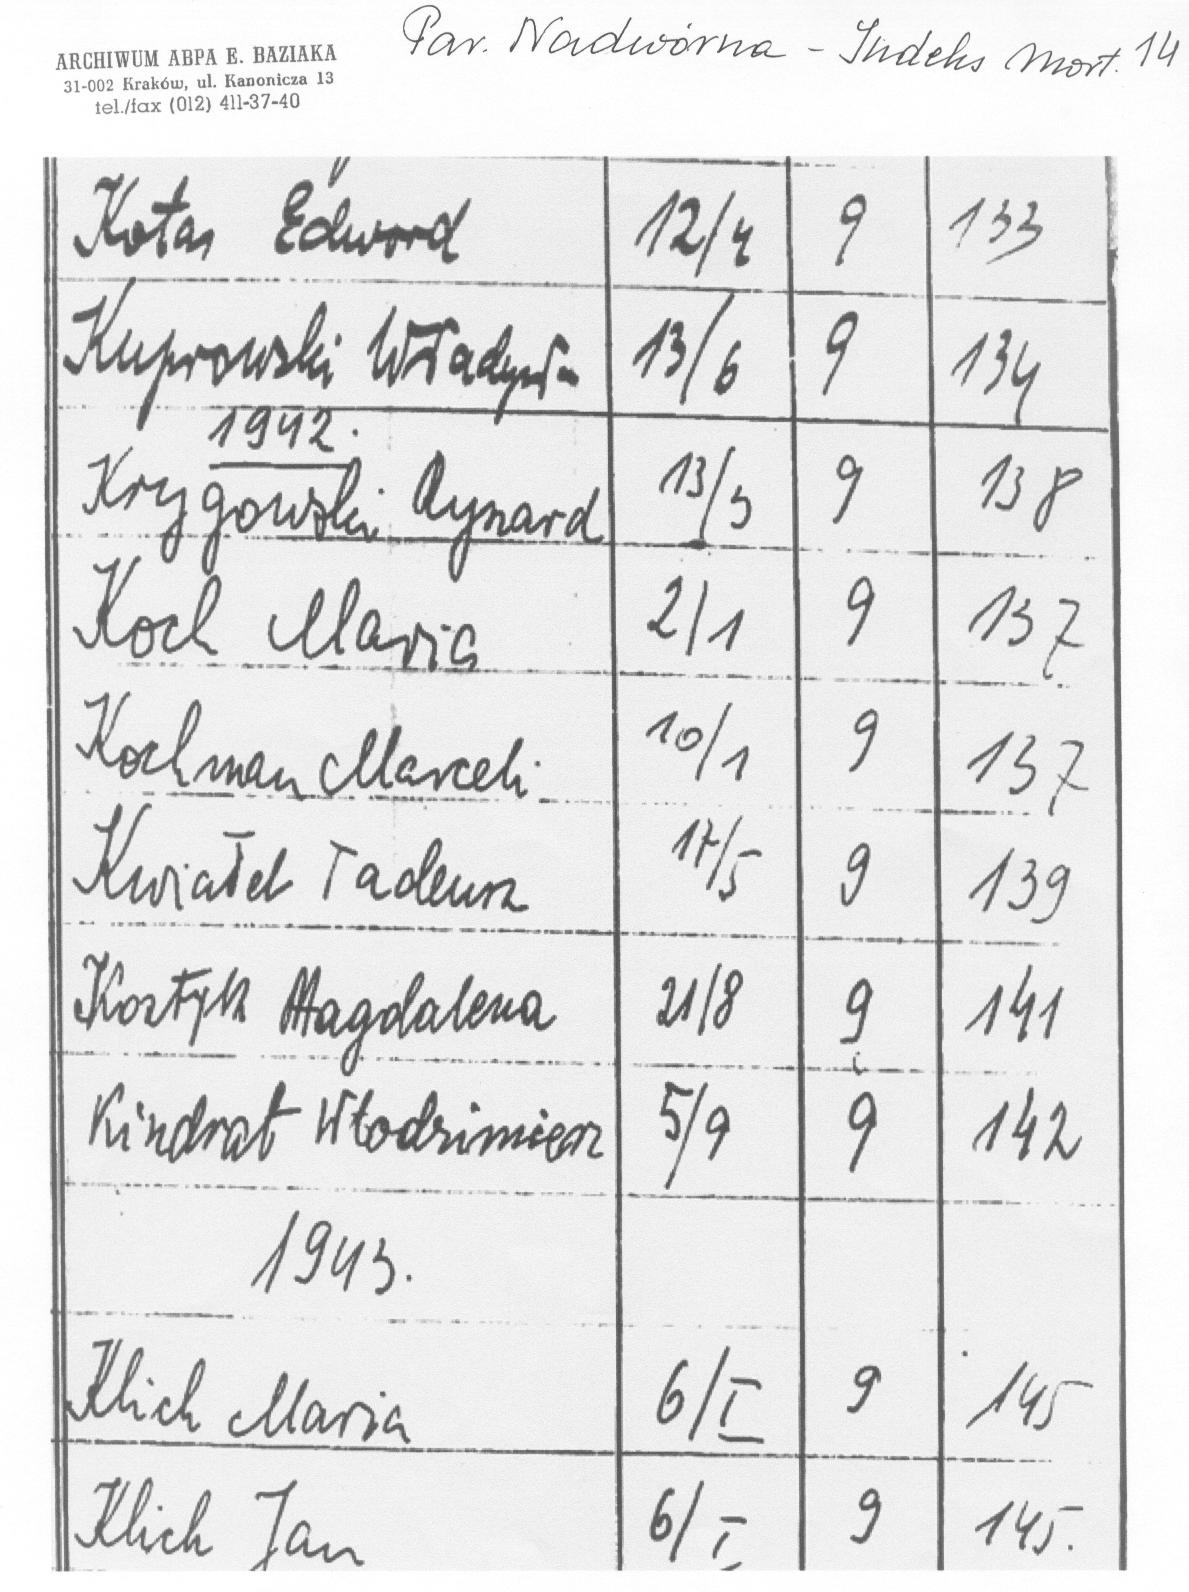 ARCHIWUM ABPA E. BAZIAKA
31-002 Kraków, ul. Kanonicza 13
tel./fax (012) 411-37-40
Par. Nadwórna - Indeks Mort. 14
Kotas Edward 12/4 9 133
Kuprowski Władysła 13/6 9 134
1942.
Krygowski Ryszard 13/3 9 138
Koch Maria 2/1 9 137
Kochman Marceli 10/1 9 137
Kwiatek Tadeusz 17/5 9 139
Kosztyk Magdalena 21/8 9 141
Kindrat Włodzimierz 5/9 9 142
1943.
Klich Maria 6/I 9 145
Klich Jan 6/I 9 145.